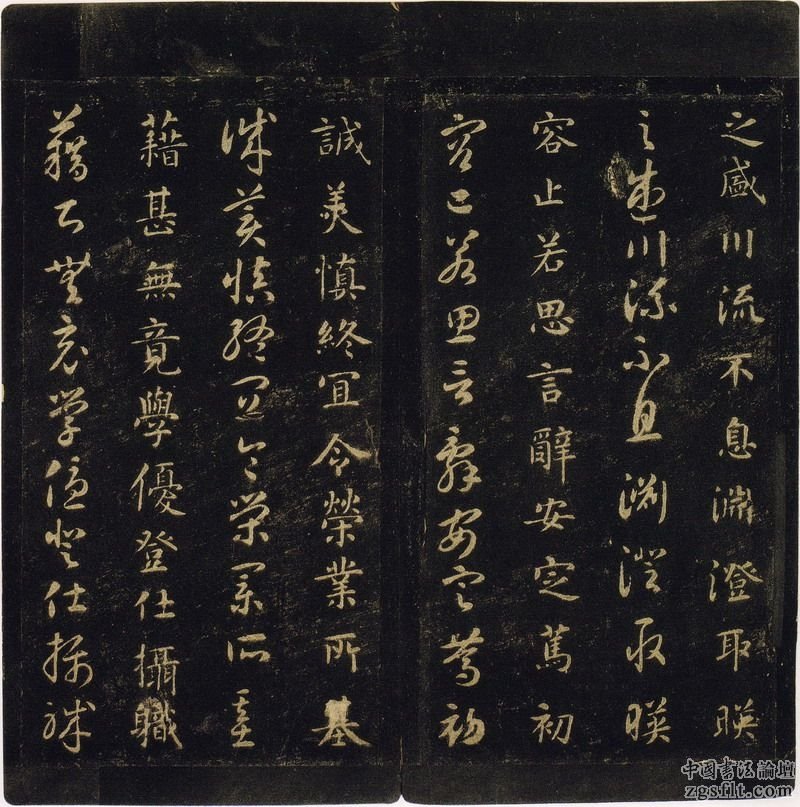 之盛川流不息淵澄取暎
之盛川流不息淵澄取暎
容止若思言辭安定篤初
容止若思言辭安定篤初
誠美慎終宜令榮業所基
誠美慎終宜令榮業所基
藉甚無竟學優登仕攝職
藉甚無竟學優登仕攝職
中國書法論壇
zgsflt.com